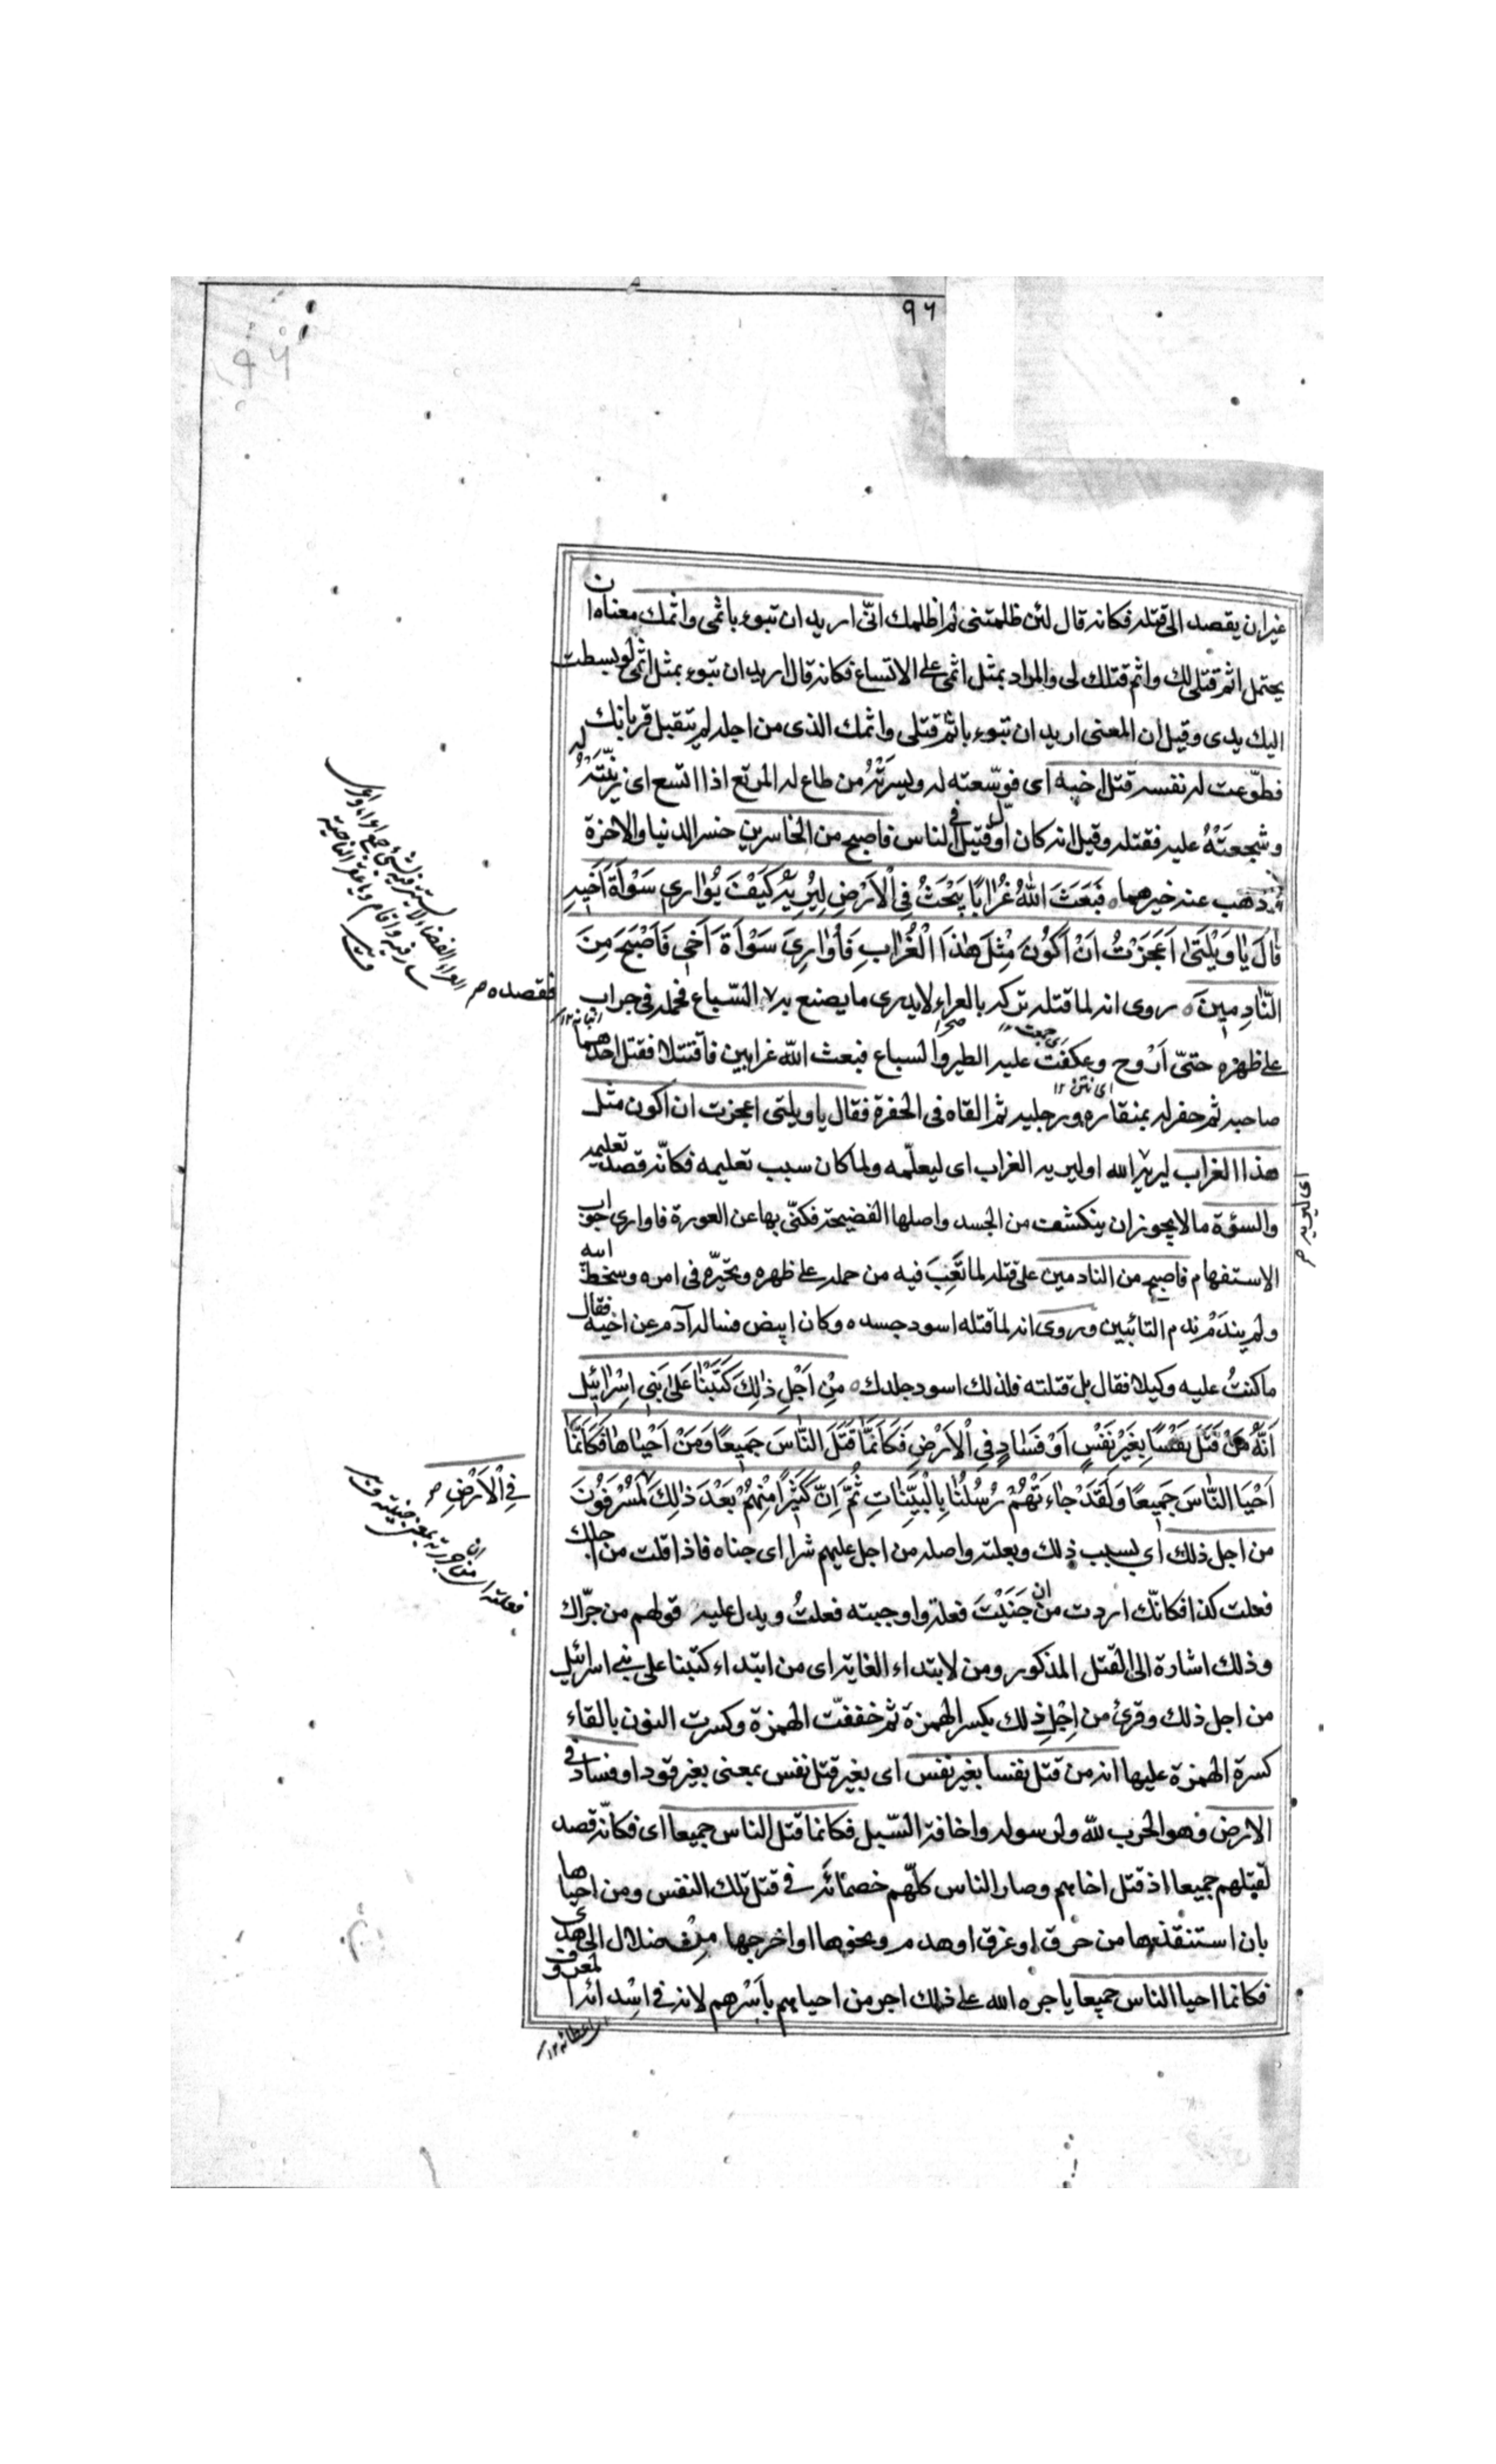 ٩٦
غير ان يقصد الى قتله فكانه قال لئن ظلمتنى لم اظلمك انّى اريد ان تبوء باثمى واثمك معناه ان
يحتمل اثم قتلى لك واثم قتلك لى والمراد بمثل اثمى على الاتساع فكانه قال اريد ان تبوء بمثل اثمى لو بسطت
اليك يدى وقيل ان المعنى اريد ان تبوء باثم قتلى واثمك الذى من اجله لم يتقبل قربانك
فطوّعت له نفسه قتل اخيه اى فوسّعته له ويسرّته من طاع له المرتع اذا اتسع اى زيّنته له
وشجعته عليه فقتله وقيل انه كان اوّل قتيل فى الناس فاصبح من الخاسرين خسر الدنيا والاخرة
وذهب عنه خيرهما فَبَعَثَ اللهُ غُرَابًا يَبْحَثُ فِى الْاَرْضِ لِيُرِيَهُ كَيْفَ يُوَارِى سَوْأَةَ اَخِيهِ
قَالَ يَا وَيْلَتَى اَعَجَزْتُ اَنْ اَكُونَ مِثْلَ هٰذَا الْغُرَابِ فَأُوَارِىَ سَوْأَةَ اَخِى فَاَصْبَحَ مِنَ
النَّادِمِينَ روى انه لما قتله تركه بالعراء لا يدرى ما يصنع به فقصده السّباع فحمله فى جراب
على ظهره حتىّ اَرْوح وعكفت عليه الطير والسباع فبعث الله غرابين فاقتتلا فقتل احدهما
صاحبه ثم حفر له بمنقاره ورجليه ثم القاه فى الحفرة فقال يا ويلتى اعجزت ان اكون مثل
هذا الغراب ليريه الله او ليريه الغراب اى ليعلّمه ولما كان سبب تعليمه فكانّه قصد تعليمه
والسؤة ما لا يجوز ان ينكشف من الجسد واصلها الفضيحة فكنّى بها عن العورة فاوارى جواب
الاستفهام فاصبح من النادمين على قتله لما تَعِبَ فيه من حمله على ظهره وتحيّره فى امره وسخط الله
ولم يندم ندم التائبين وروى انه لما قتله اسود جسده وكان ابيض فساله آدم عن اخيه فقال
ما كنتُ عليه وكيلا فقال بل قتلته فلذلك اسود جلدك مِنْ اَجْلِ ذٰلِكَ كَتَبْنَا عَلىٰ بَنِى اِسْرَائِيلَ
اَنَّهُ مَنْ قَتَلَ نَفْسًا بِغَيْرِ نَفْسٍ اَوْ فَسَادٍ فِى الْاَرْضِ فَكَاَنَّمَا قَتَلَ النَّاسَ جَمِيعًا وَمَنْ اَحْيَاهَا فَكَاَنَّمَا
اَحْيَا النَّاسَ جَمِيعًا وَلَقَدْ جَاءَتْهُمْ رُسُلُنَا بِالْبَيِّنَاتِ ثُمَّ اِنَّ كَثِيرًا مِنْهُمْ بَعْدَ ذٰلِكَ لَمُسْرِفُونَ
من اجل ذلك اى بسبب ذلك وبعلته واصله من اجل عليهم شرا اى جناه فاذا قلت من اجلك
فعلت كذا فكانّك اردت من ان جَنَيْتَ فعله واوجبته فعلتُ ويدل عليه قولهم من جرّاك
وذلك اشارة الى القتل المذكور ومن لابتداء الغاية اى من ابتداء كتبنا على بنى اسرائيل
من اجل ذلك وقرئ من اِجْلِ ذلك بكسر الهمزة ثم خففت الهمزة وكسرت النون بالقاء
كسرة الهمزة عليها انه من قتل نفسا بغير نفس اى بغير قتل نفس بمعنى بغير قود او فساد فى
الارض وهو الحرب لله ولرسوله واخافة السّبيل فكانما قتل الناس جميعا اى فكانّه قصد
لقتلهم جميعا اذ قتل اخاهم وصار الناس كلّهم خصمائه فى قتل تلك النفس ومن احياها
بان استنقذها من حرق او غرق او هدم ونحوها او اخرجها من ضلال الى هدى
فكانما احيا الناس جميعا ياجره الله على ذلك اجر من احياهم باَسْرهم لانه فى اسدائه المعروف
فقصده
فِى الْاَرْضِ
اى ليريه